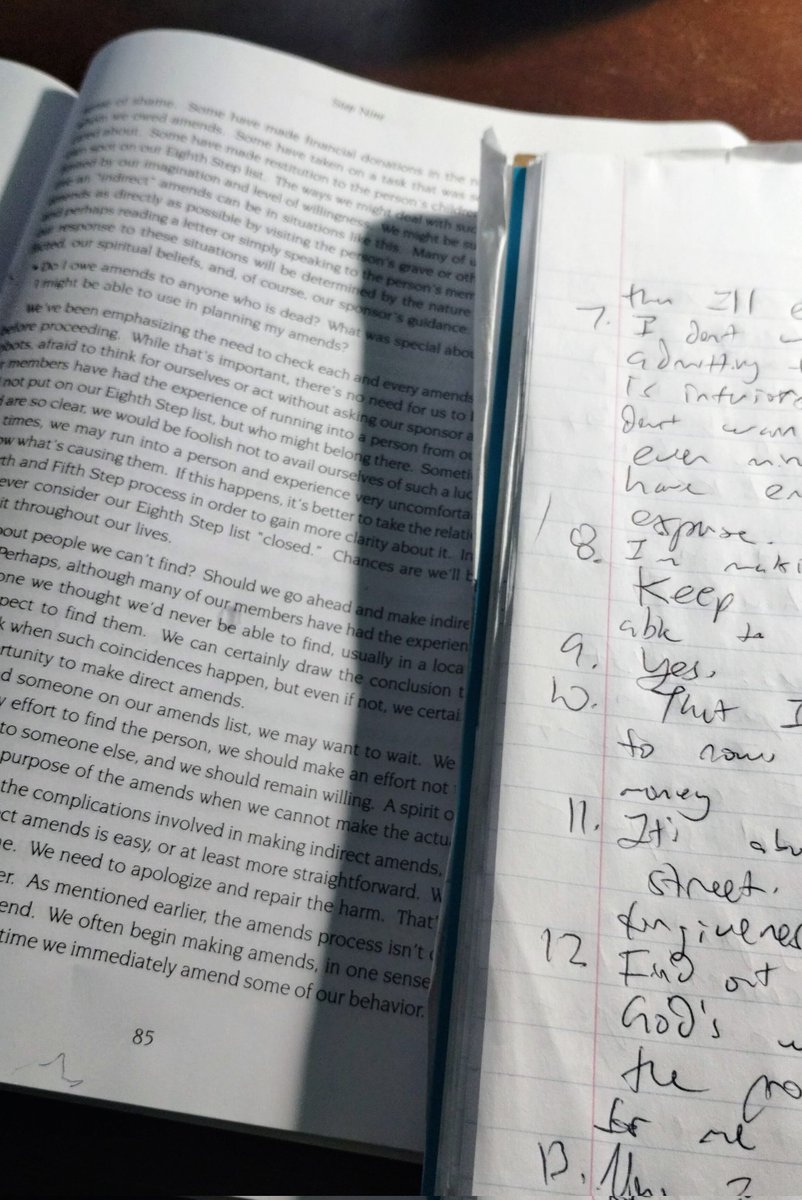 Step Nine
sense of shame. Some have made financial donations in the
whom we owed amends. Some have taken on a task that was
cared about. Some have made restitution to the person's children
on our Eighth Step list. The ways we might deal with such
by our imagination and level of willingness. We might be su
an "indirect" amends can be in situations like this. Many of u
amends as directly as possible by visiting the person's grave or oth
and perhaps reading a letter or simply speaking to the person's mem
response to these situations will be determined by the nature
our spiritual beliefs, and, of course, our sponsor's guidance.
• Do I owe amends to anyone who is dead? What was special abou
I might be able to use in planning my amends?
We've been emphasizing the need to check each and every amends
before proceeding. While that's important, there's no need for us to
obots, afraid to think for ourselves or act without asking our sponsor a
members have had the experience of running into a person from ou
not put on our Eighth Step list, but who might belong there. Someti
are so clear, we would be foolish not to avail ourselves of such a luc
times, we may run into a person and experience very uncomforta
ow what's causing them. If this happens, it's better to take the relati
rth and Fifth Step process in order to gain more clarity about it. In
ever consider our Eighth Step list "closed." Chances are we'll b
it throughout our lives.
bout people we can't find? Should we go ahead and make indire
Perhaps, although many of our members have had the experien
one we thought we'd never be able to find, usually in a loca
pect to find them. We can certainly draw the conclusion t
k when such coincidences happen, but even if not, we certai
rtunity to make direct amends.
d someone on our amends list, we may want to wait. We
y effort to find the person, we should make an effort not
to someone else, and we should remain willing. A spirit o
purpose of the amends when we cannot make the actu
the complications involved in making indirect amends,
ct amends is easy, or at least more straightforward. W
e. We need to apologize and repair the harm. That'
er. As mentioned earlier, the amends process isn't
end. We often begin making amends, in one sense
time we immediately amend some of our behavior.
85
then I'll e
7. I dont w
admitting
is
Dont wan
even min
have en
expense.
8. I'm maki
Keep
able to
9. Yes.
10. That I
to
money
11. It's abo
street.
forgivenes
12 Find out
GOD's w
the po
for me
13.